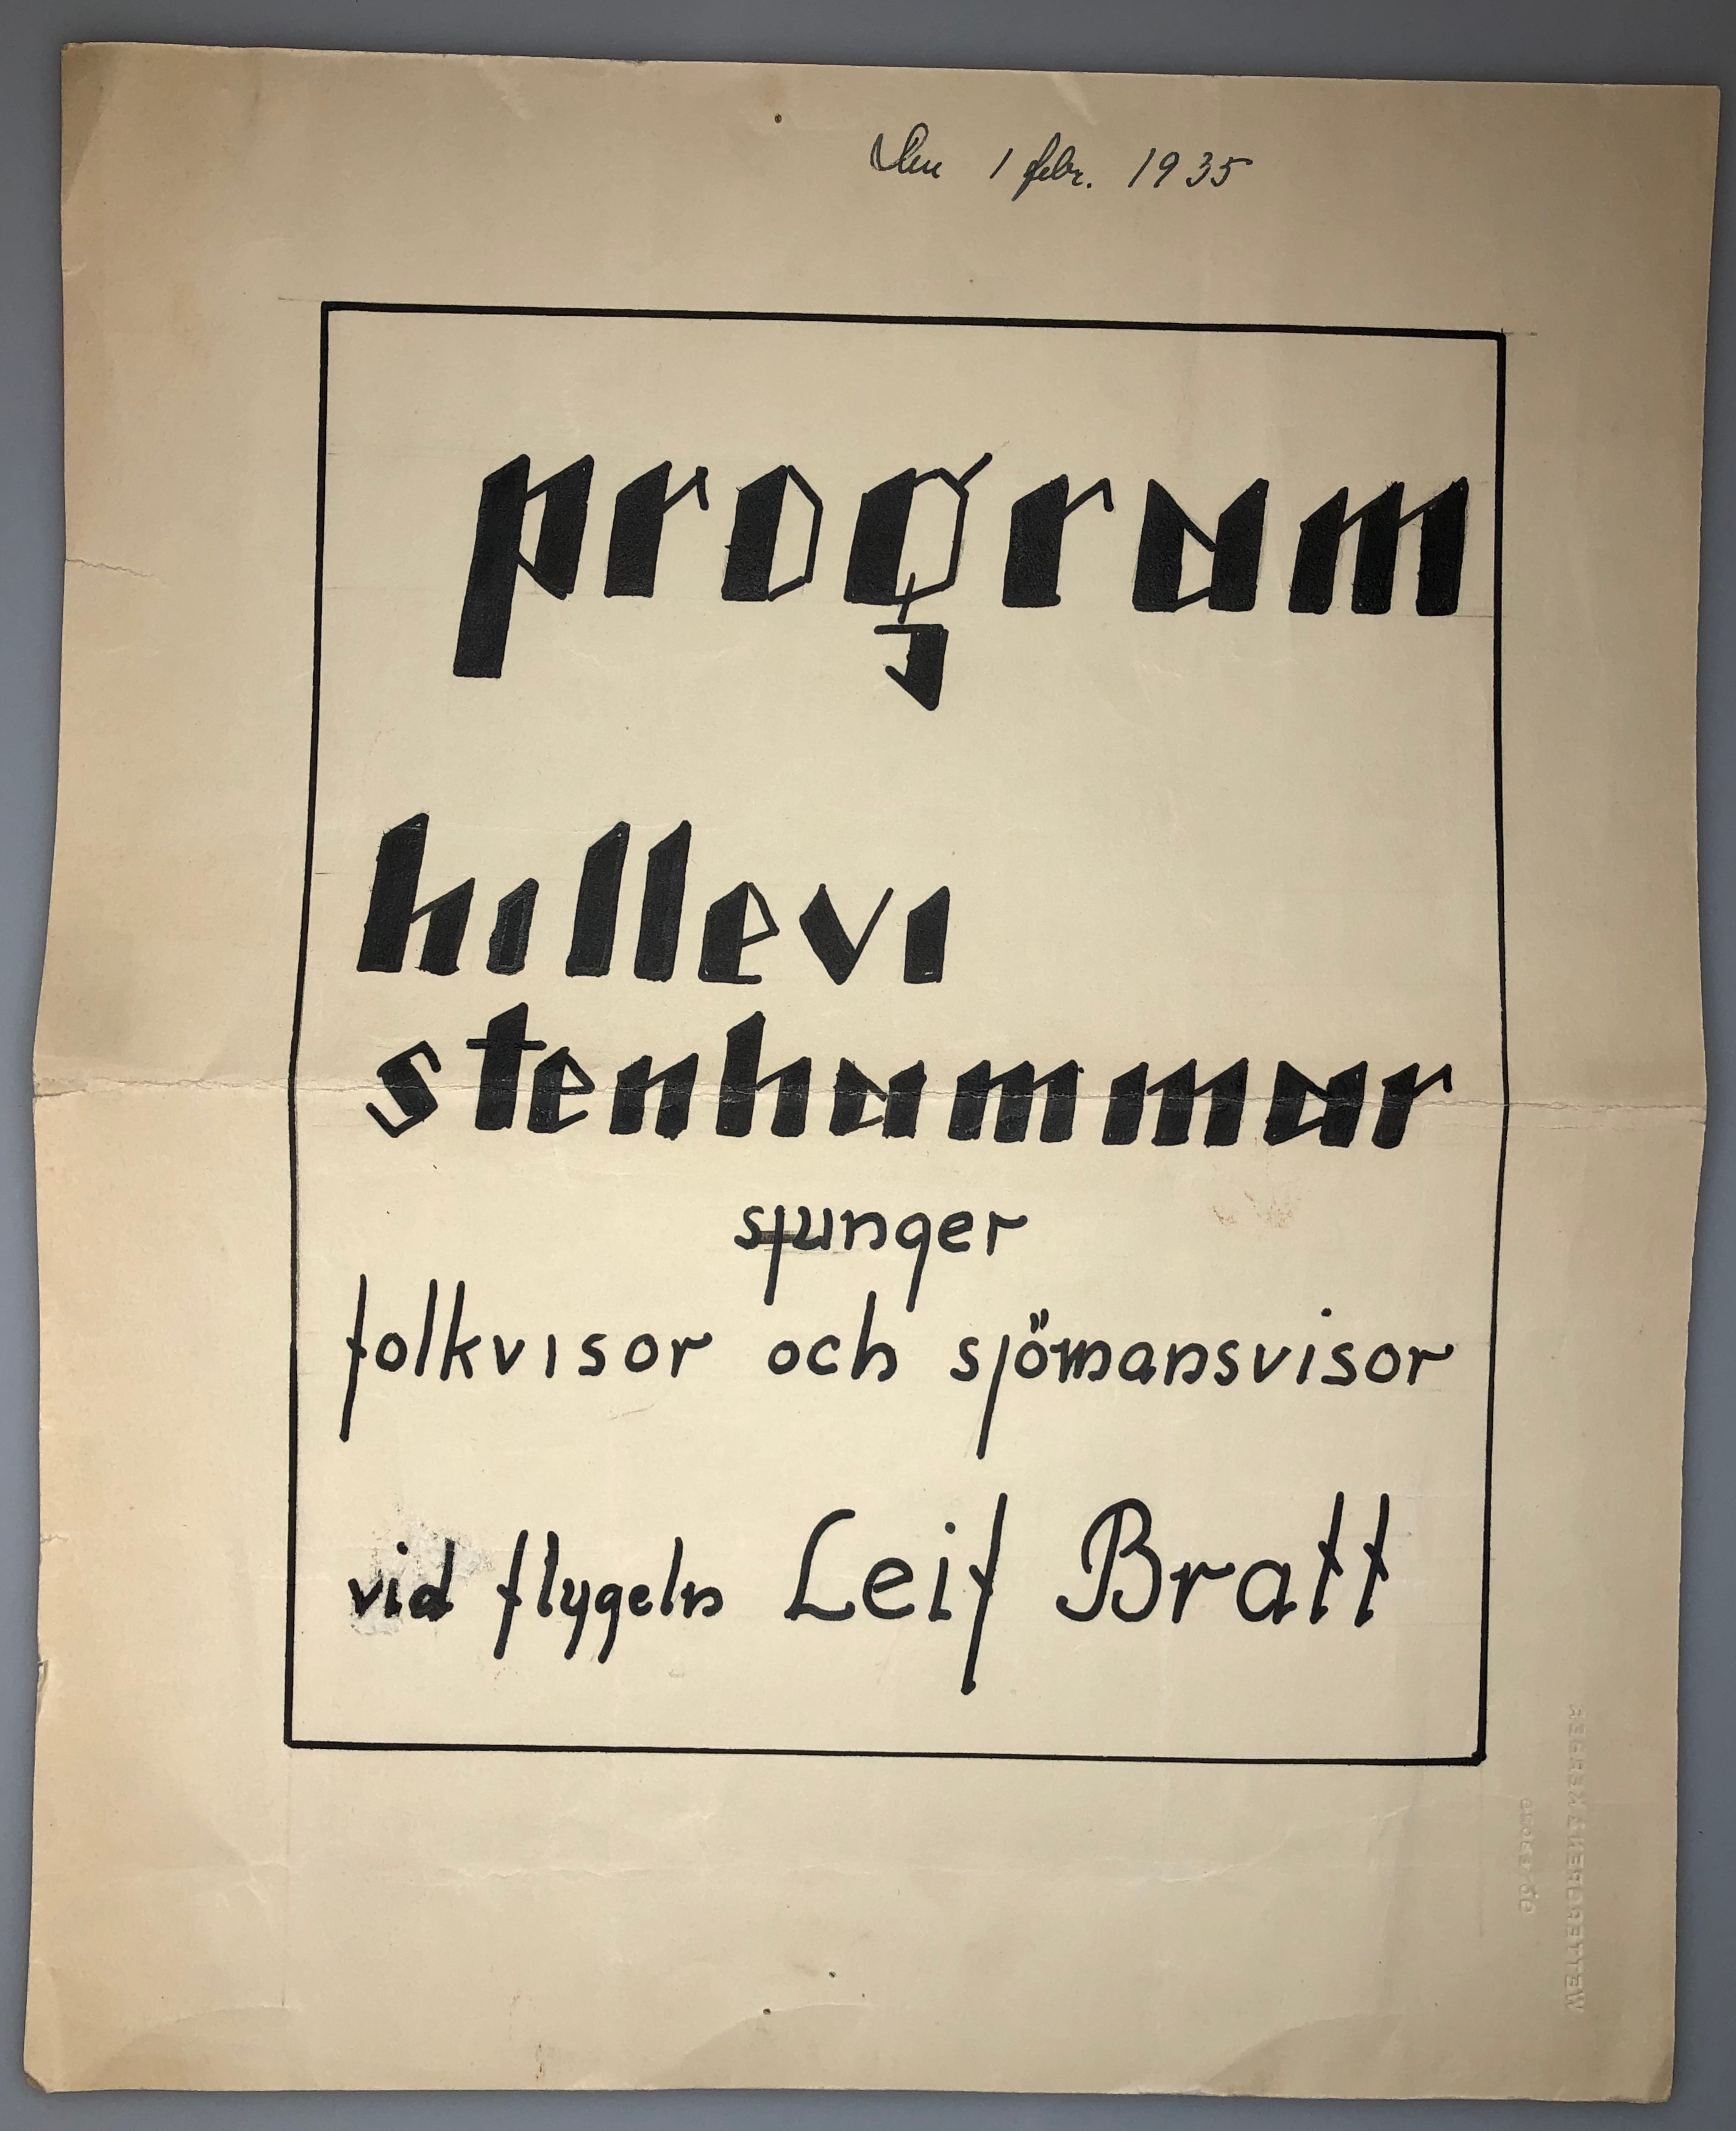 Den 1 febr. 1935
program
hillevi
stenhammar
sjunger
folkvisor och sjömansvisor
vid flygeln Leif Bratt